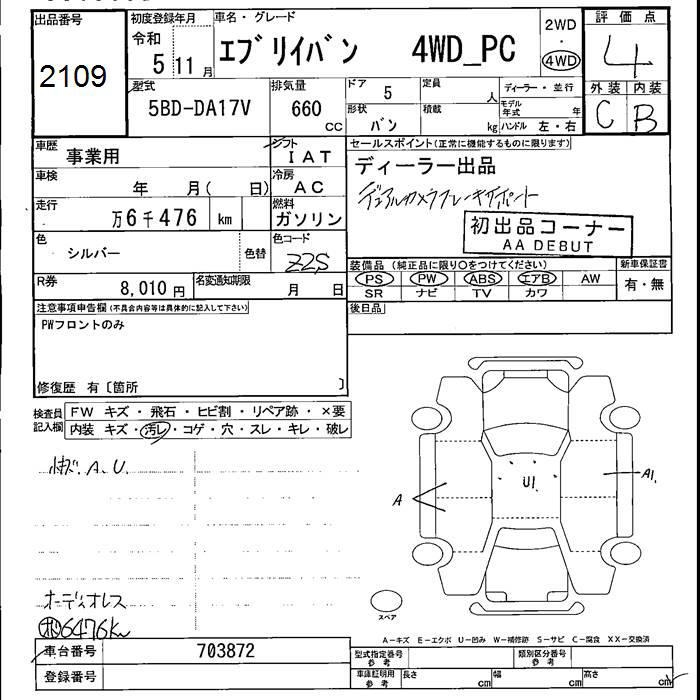 出品番号
2109
初度登録年月
令和
5 11 月
車名・グレード
エブリイバン 4WD_PC
2WD
・
4WD
評価点
4
外装 内装
C B
型式
5BD-DA17V
排気量
660
cc
ドア 5
形状 バン
定員 人
積載 kg
ディーラー・並行
モデル年式 年
ハンドル 左・右
車歴 事業用
シフト IAT
車検 年 月( 日)
冷房 AC
走行 万6千476 km
燃料 ガソリン
色 シルバー
色替
色コード Z2S
R券 8,010 円
名変通知期限 月 日
セールスポイント(正常に機能するものに限ります)
ディーラー出品
デュアルカメラブレーキサポート
初出品コーナー
AA DEBUT
装備品(純正品に限り○をつけてください)
PS PW ABS エアB AW
SR ナビ TV カワ
新車保証書
有・無
後日品
注意事項申告欄(不具合内容等は具体的に記入して下さい)
PWフロントのみ
修復歴 有〔箇所 〕
検査員記入欄
FW キズ・飛石・ヒビ割・リペア跡・×要
内装 キズ・汚レ・コゲ・穴・スレ・キレ・破レ
A.U.
オーディオレス
6476km
A
U1
A1
スペア
A-キズ E-エクボ U-凹み W-補修跡 S-サビ C-腐食 XX-交換済
車台番号 703872
登録番号
型式指定番号 参考
類別区分番号 参考
車庫証明用 参考
長さ cm
幅 cm
高さ cm